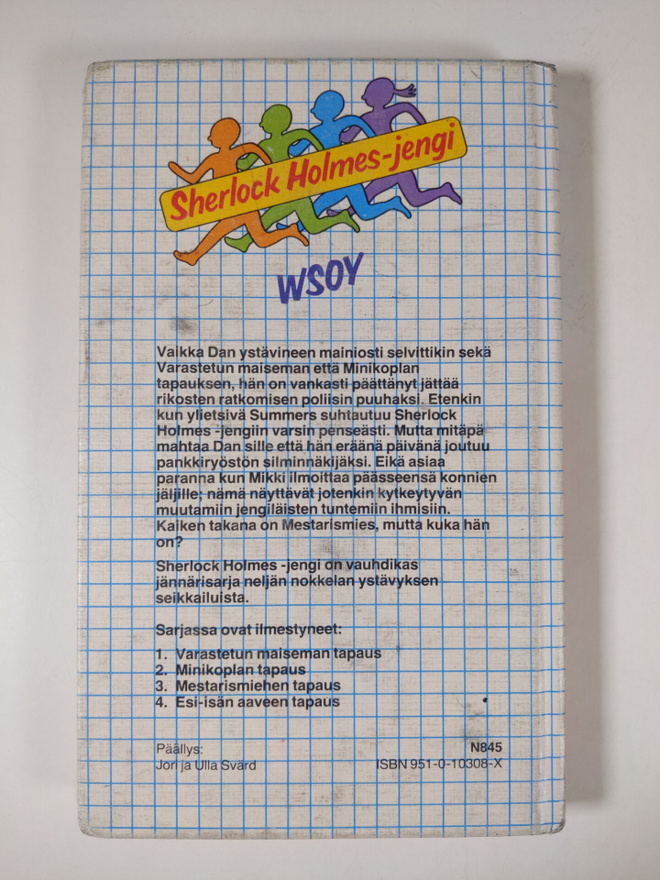 Sherlock Holmes-jengi
WSOY
Vaikka Dan ystävineen mainiosti selvittikin sekä
Varastetun maiseman että Minikoplan
tapauksen, hän on vankasti päättänyt jättää
rikosten ratkomisen poliisin puuhaksi. Etenkin
kun ylietsivä Summers suhtautuu Sherlock
Holmes -jengiin varsin penseästi. Mutta mitäpä
mahtaa Dan sille että hän eräänä päivänä joutuu
pankkiryöstön silminnäkijäksi. Eikä asiaa
paranna kun Mikki ilmoittaa päässeensä konnien
jäljille; nämä näyttävät jotenkin kytkeytyvän
muutamiin jengiläisten tuntemiin ihmisiin.
Kaiken takana on Mestarismies, mutta kuka hän
on?
Sherlock Holmes -jengi on vauhdikas
jännärisarja neljän nokkelan ystävyksen
seikkailuista.
Sarjassa ovat ilmestyneet:
1. Varastetun maiseman tapaus
2. Minikoplan tapaus
3. Mestarismiehen tapaus
4. Esi-isän aaveen tapaus
Päällys:
Jori ja Ulla Svärd
N845
ISBN 951-0-10308-X